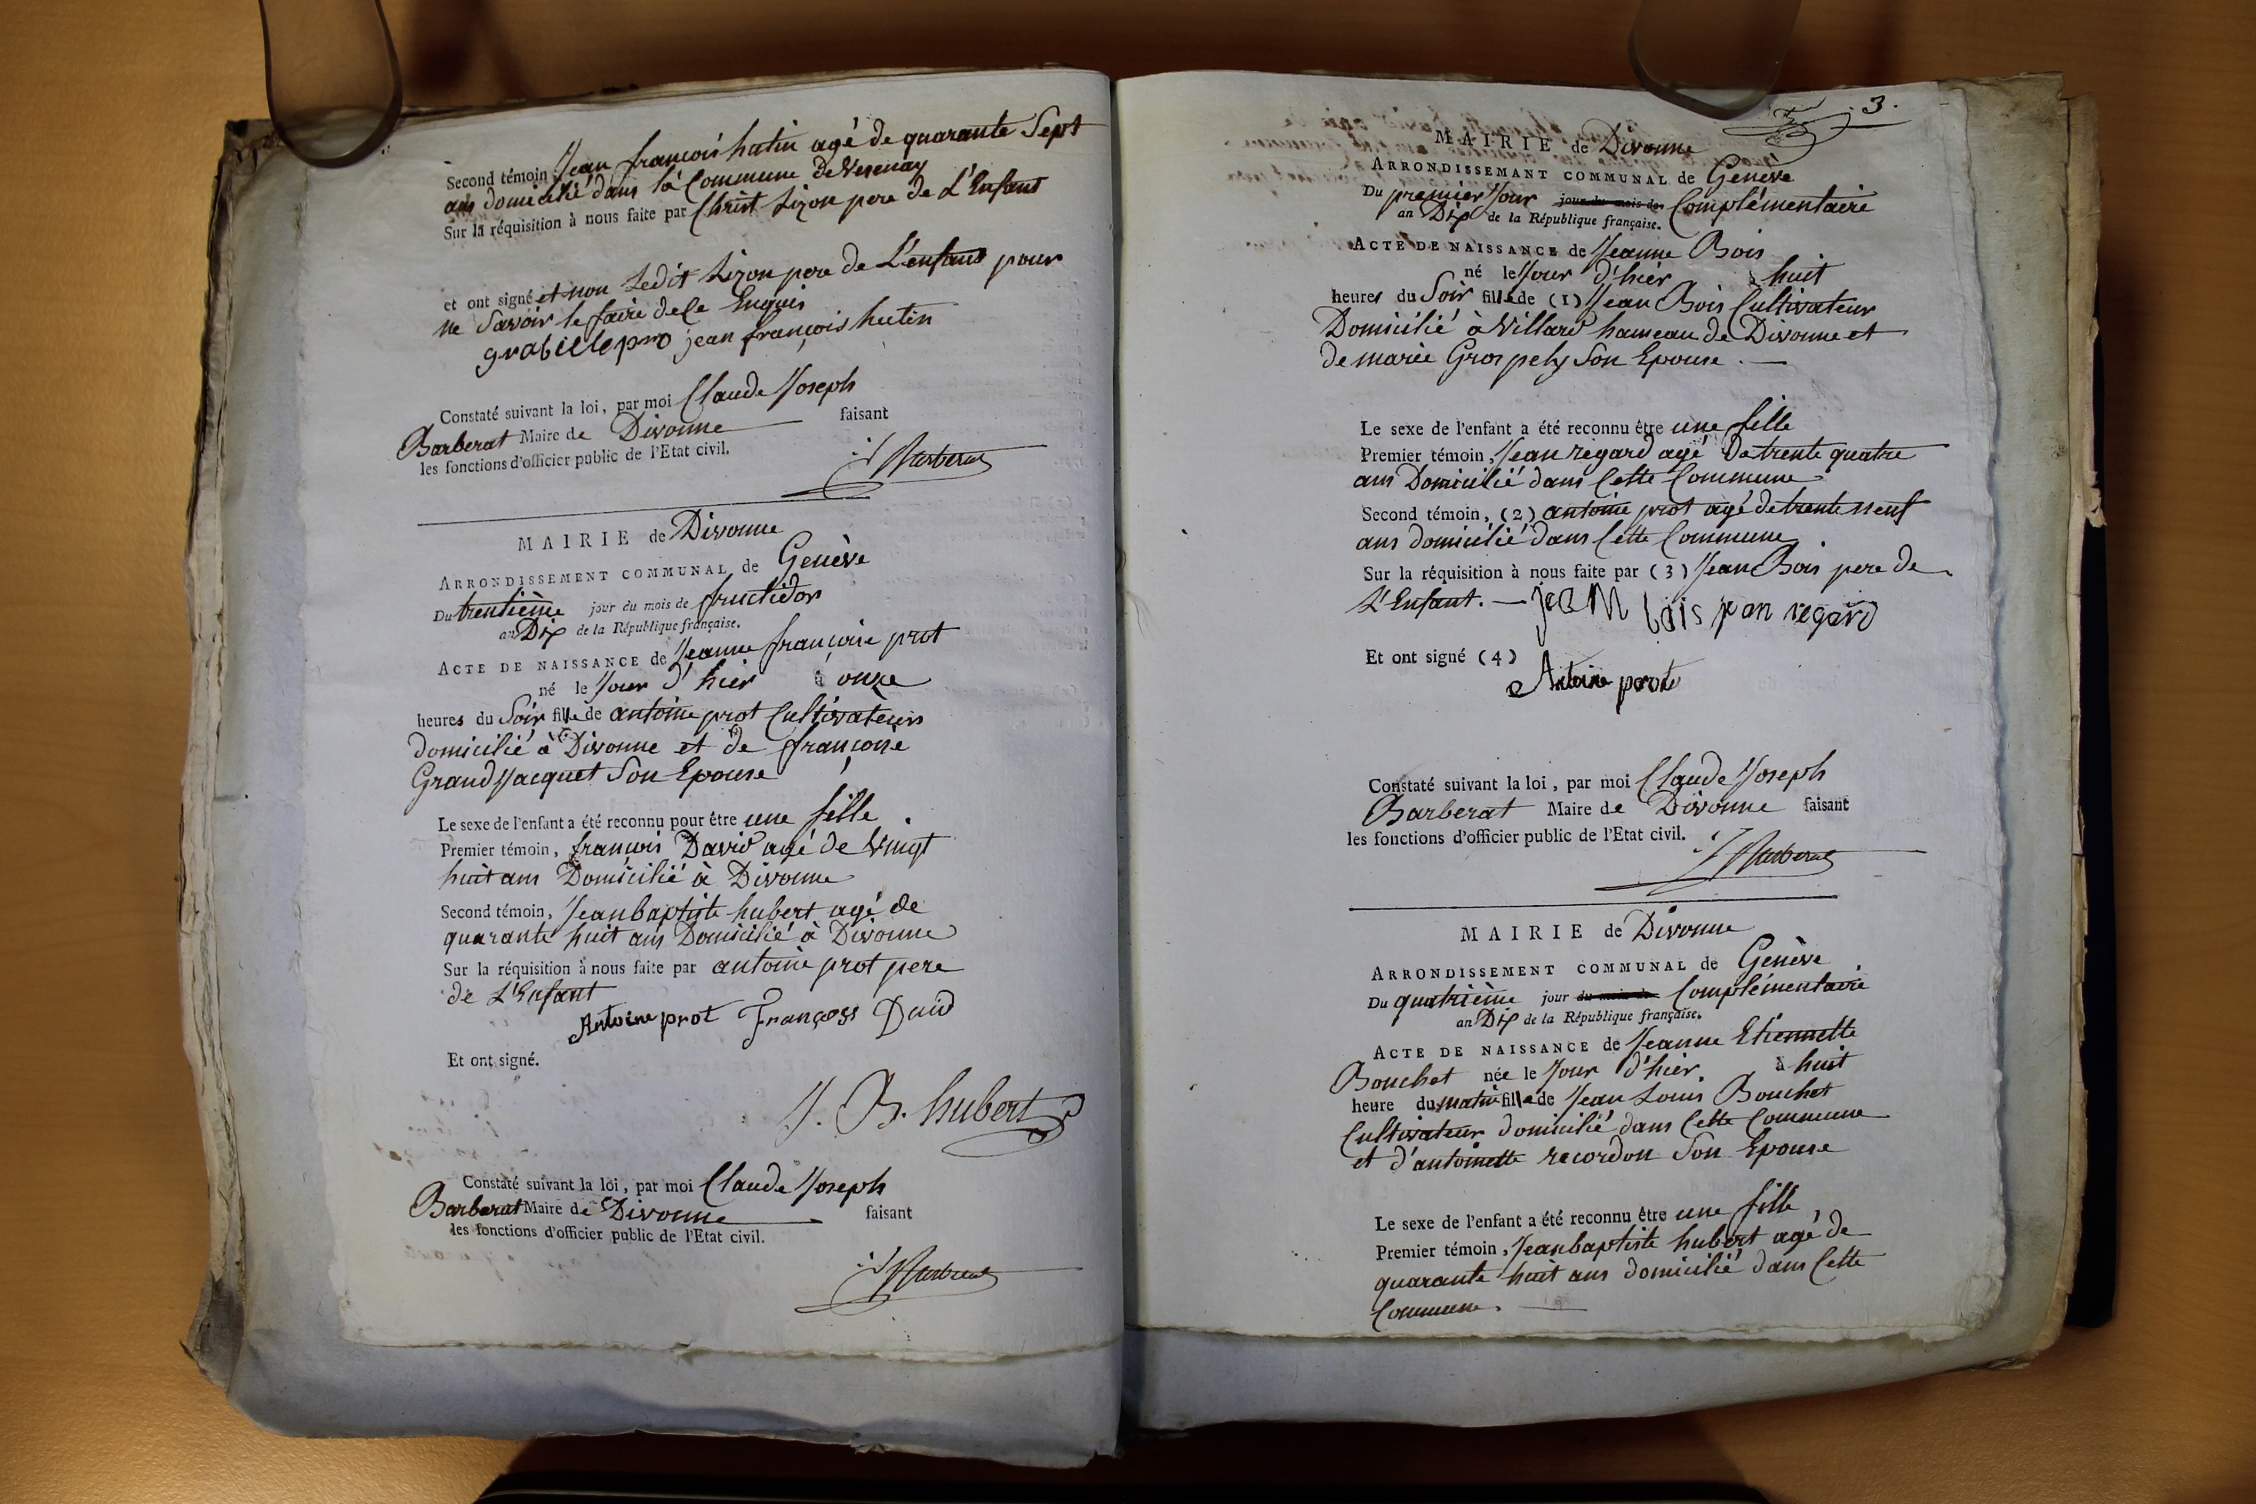 Second témoin, Jean françois hutin agé de quarante Sept
ans domicilié dans la Commune de Vesenay
Sur la réquisition à nous faite par Christ Lizon pere de L'Enfant
et ont signé et non Ledit Lizon pere de L'enfant pour
ne Savoir le faire de Ce Enquis
jean françois hutin
Constaté suivant la loi, par moi Claude Joseph
Barberat Maire de Divonne faisant
les fonctions d'officier public de l'Etat civil.
Barberat
MAIRIE de Divonne
ARRONDISSEMENT COMMUNAL de Genève
Du trentième jour du mois de fructidor
an Dix de la République française.
ACTE DE NAISSANCE de Jeanne françoise prot
né le Jour d'hier à onze
heures du Soir fille de antoine prot Cultivateur
domicilié à Divonne et de françoise
Grand Jacquet Son Epouse
Le sexe de l'enfant a été reconnu pour être une fille.
Premier témoin, françois David agé de Vingt
huit ans Domicilié à Divonne
Second témoin, Jean baptiste hubert agé de
quarante huit ans Domicilié à Divonne
Sur la réquisition à nous faite par antoine prot pere
de L'Enfant
Antoine prot François David
Et ont signé.
J. B. hubert
Constaté suivant la loi, par moi Claude Joseph
Barberat Maire de Divonne faisant
les fonctions d'officier public de l'Etat civil.
Barberat
3.
MAIRIE de Divonne
ARRONDISSEMANT COMMUNAL de Genève
Du premier Jour jour du mois de Complémentaire
an Dix de la République française.
ACTE DE NAISSANCE de Jeanne Bois
né le Jour d'hier à huit
heures du Soir fille de (1) Jean Bois Cultivateur
Domicilié à Villard hameau de Divonne et
de marie Gros pely Son Epouse.
Le sexe de l'enfant a été reconnu être une fille
Premier témoin, Jean regard agé De trente quatre
ans Domicilié dans Cette Commune
Second témoin, (2) antoine prot agé de trente neuf
ans domicilié dans Cette Commune
Sur la réquisition à nous faite par (3) Jean Bois pere de
L'Enfant. jean bois jean regard
Et ont signé (4)
Antoine prot
Constaté suivant la loi, par moi Claude Joseph
Barberat Maire de Divonne faisant
les fonctions d'officier public de l'Etat civil.
Barberat
MAIRIE de Divonne
ARRONDISSEMENT COMMUNAL de Genève
Du quatrième jour du mois de Complémentaire
an Dix de la République française.
ACTE DE NAISSANCE de Jeanne Etiennette
Bouchet née le Jour d'hier à huit
heure du matin fille de Jean Louis Bouchet
Cultivateur domicilié dans Cette Commune
et d'antoinette recordon Son Epouse
Le sexe de l'enfant a été reconnu être une fille
Premier témoin, Jean baptiste hubert agé de
quarante huit ans domicilié dans Cette
Commune.